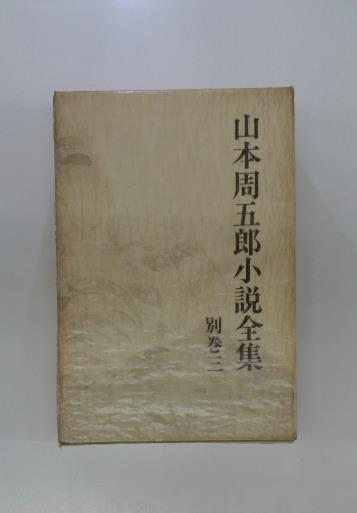 山本周五郎小説全集
別巻三